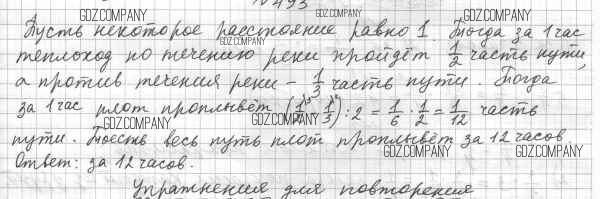 № 493
GDZ.COMPANY GDZ.COMPANY GDZ.COMPANY
Пусть некоторое расстояние равно 1. Тогда за 1 час
теплоход по течению реки пройдёт 1/2 часть пути,
а против течения реки – 1/3 часть пути. Тогда
за 1 час плот проплывёт (1/2 - 1/3) : 2 = 1/6 · 1/2 = 1/12 часть
GDZ.COMPANY GDZ.COMPANY GDZ.COMPANY
пути. Тоесть весь путь плот проплывёт за 12 часов
GDZ.COMPANY GDZ.COMPANY
Ответ: за 12 часов.
Упражнения для повторения